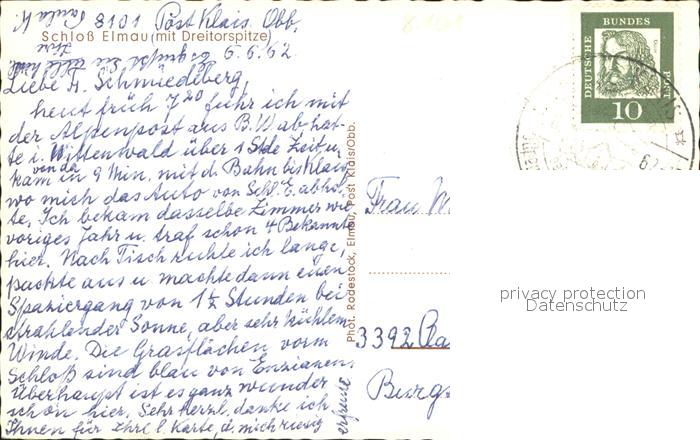 8101 Post Klais Obb.
Schloß Elmau (mit Dreitorspitze)
6.6.62.
Liebe Fr. Schmiedeberg,
heut früh 7 20 fuhr ich mit
der Alpenpost aus B.W ab hat-
te i. Mittenwald über 1 Stde Zeit u.
kam von da in 9 Min. mit d. Bahn bis Klais,
wo mich das Auto von Schl. E. abhol-
te. Ich bekam dasselbe Zimmer wie
voriges Jahr u. traf schon 4 Bekannte
hier. Nach Tisch ruhte ich lange,
packte aus u machte dann einen
Spaziergang von 1½ Stunden bei
strahlender Sonne, aber sehr kühlem
Winde. Die Grasflächen vorm
Schloß sind blau von Enzianen
überhaupt ist es ganz wunder
schön hier. Sehr herzl. danke ich
Ihnen für Ihre l. Karte, d. mich riesig
erfreute
Phot. Rodestock, Elmau, Post Klais/Obb.
DEUTSCHE BUNDES POST
10
Frau
3392
Burgs
privacy protection
Datenschutz